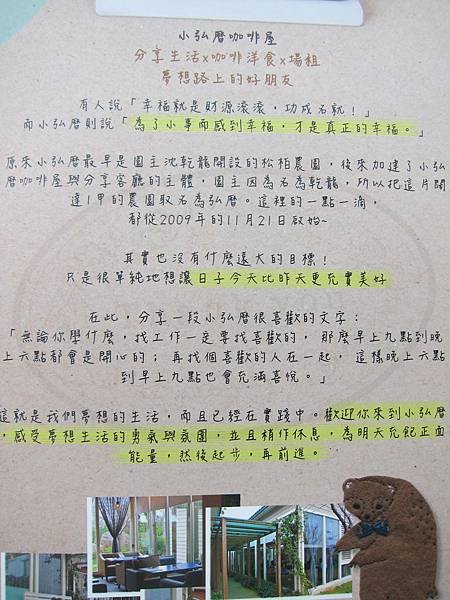 小弘曆咖啡屋
分享生活x咖啡洋食x場租
夢想路上的好朋友
有人說「幸福就是財源滾滾，功成名就！」
而小弘曆則說「為了小事而感到幸福，才是真正的幸福。」
原來小弘曆最早是園主沈乾龍開設的松柏農園，後來加建了小弘
曆咖啡屋與分享客廳的主體，園主因為名為乾龍，所以把這片闊
達1甲的農園取名為弘曆。這裡的一點一滴，
都從2009年的11月21日啟始~
其實也沒有什麼遠大的目標！
只是很單純地想讓日子今天比昨天更充實美好
在此，分享一段小弘曆很喜歡的文字：
「無論你學什麼，找工作一定要找喜歡的，那麼早上九點到晚
上六點都會是開心的；再找個喜歡的人在一起，這樣晚上六點
到早上九點也會充滿喜悅。」
這就是我們夢想的生活，而且已經在實踐中。歡迎你來到小弘曆
，感受夢想生活的勇氣與氛圍，並且稍作休息，為明天充飽正面
能量，然後起步，再前進。